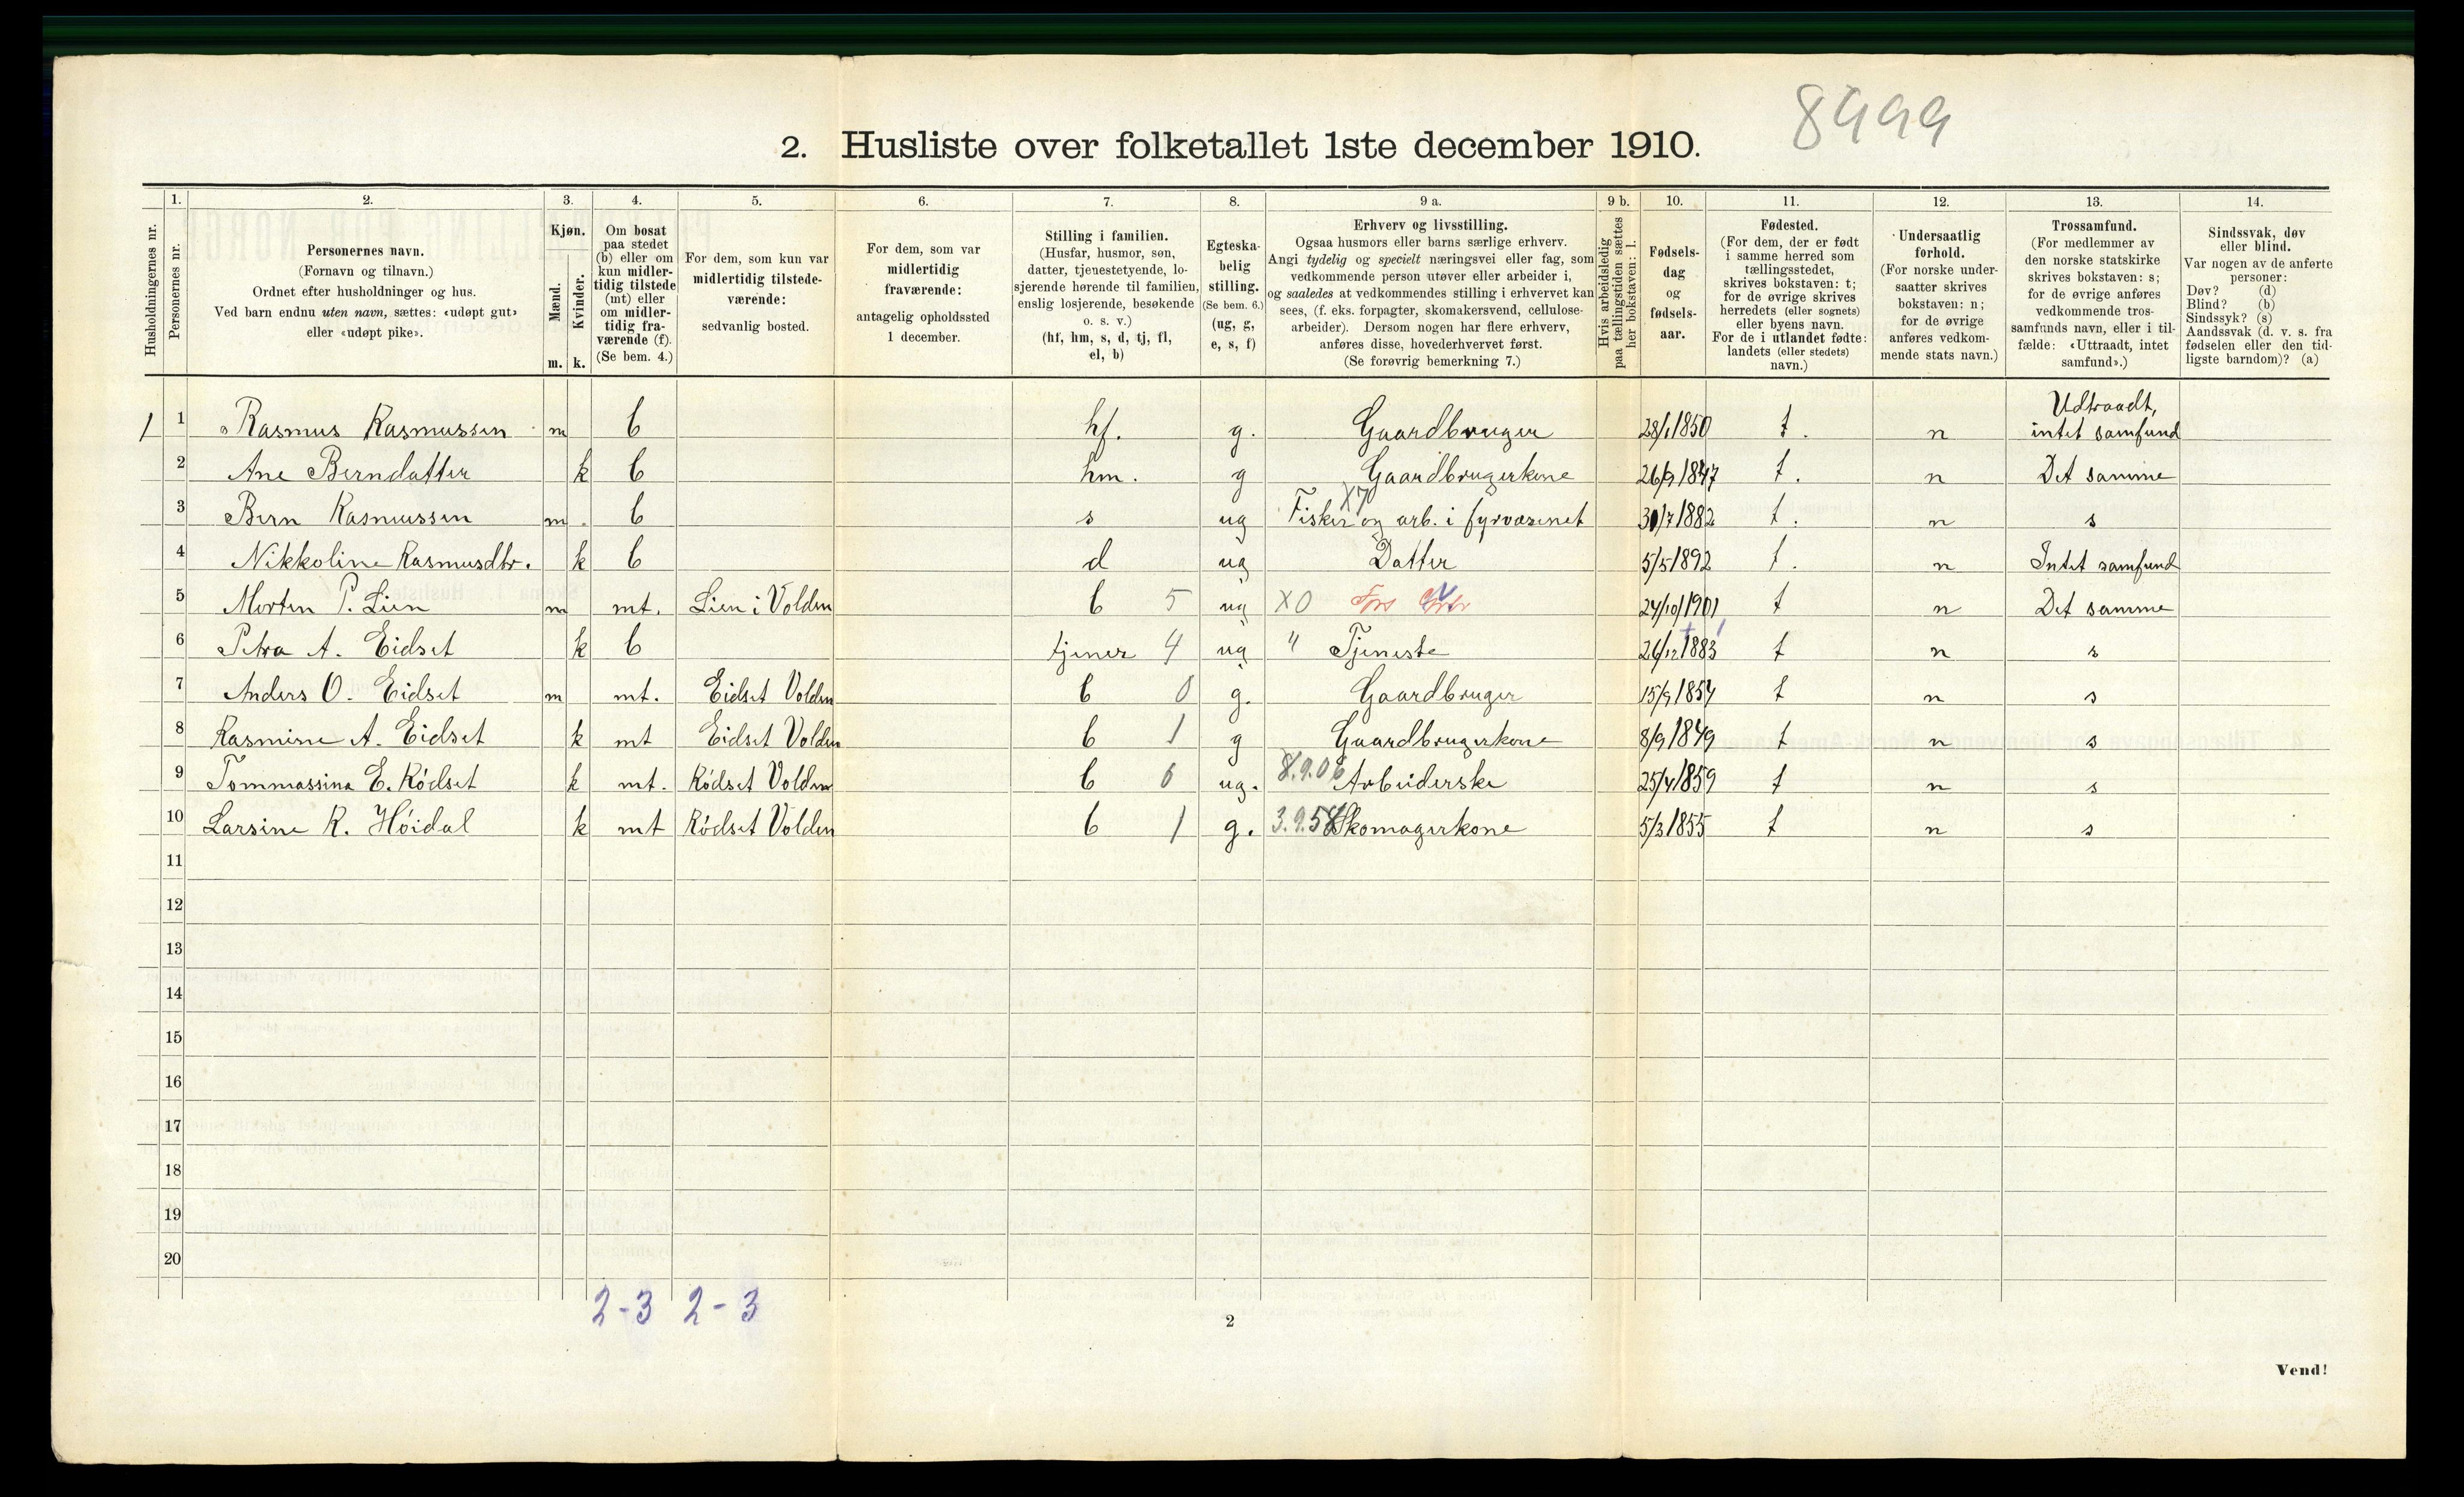 8999
2. Husliste over folketallet 1ste december 1910.
1. 2. 3. 4. 5. 6. 7. 8. 9 a. 9 b. 10. 11. 12. 13. 14.
Husholdningernes nr.
Personernes nr.
Personernes navn.
(Fornavn og tilnavn.)
Ordnet efter husholdninger og hus.
Ved barn endnu uten navn, sættes: «udøpt gut»
eller «udøpt pike».
Kjøn.
Mænd.
Kvinder.
m. k.
Om bosat
paa stedet
(b) eller om
kun midler-
tidig tilstede
(mt) eller
om midler-
tidig fra-
værende (f).
(Se bem. 4.)
For dem, som kun var
midlertidig tilstede-
værende:
sedvanlig bosted.
For dem, som var
midlertidig
fraværende:
antagelig opholdssted
1 december.
Stilling i familien.
(Husfar, husmor, søn,
datter, tjenestetyende, lo-
sjerende hørende til familien,
enslig losjerende, besøkende
o. s. v.)
(hf, hm, s, d, tj, fl,
el, b)
Egteska-
belig
stilling.
(Se bem. 6.)
(ug, g,
e, s, f)
Erhverv og livsstilling.
Ogsaa husmors eller barns særlige erhverv.
Angi tydelig og specielt næringsvei eller fag, som
vedkommende person utøver eller arbeider i,
og saaledes at vedkommendes stilling i erhvervet kan
sees, (f. eks. forpagter, skomakersvend, cellulose-
arbeider). Dersom nogen har flere erhverv,
anføres disse, hovederhvervet først.
(Se forøvrig bemerkning 7.)
Hvis arbeidsledig
paa tællingstiden sættes
her bokstaven: l.
Fødsels-
dag
og
fødsels-
aar.
Fødested.
(For dem, der er født
i samme herred som
tællingsstedet,
skrives bokstaven: t;
for de øvrige skrives
herredets (eller sognets)
eller byens navn.
For de i utlandet fødte:
landets (eller stedets)
navn.)
Undersaatlig
forhold.
(For norske under-
saatter skrives
bokstaven: n;
for de øvrige
anføres vedkom-
mende stats navn.)
Trossamfund.
(For medlemmer av
den norske statskirke
skrives bokstaven: s;
for de øvrige anføres
vedkommende tros-
samfunds navn, eller i til-
fælde: «Uttraadt, intet
samfund».)
Sindssvak, døv
eller blind.
Var nogen av de anførte
personer:
Døv? (d)
Blind? (b)
Sindssyk? (s)
Aandssvak (d. v. s. fra
fødselen eller den tid-
ligste barndom)? (a)
Udtraadt,
1 1 Rasmus Rasmussen m b hf. g. Gaardbruger 28/1 1850 t. n intet samfund
2 Ane Berndatter k b hm. g Gaardbrugerkone 26/9 1847 t. n Det samme
X7
3 Bern Rasmussen m b s ug Fisker og arb. i fyrvæsenet 30/7 1882 t. n s
4 Nikkoline Rasmusdtr. k b d ug Datter 5/5 1892 t. n Intet samfund
5 Morten P. Lien m mt. Lien i Volden b 5 ug X0 24/10 1901 t n Det samme
6 Petra A. Eidset k b tjener 4 ug " Tjeneste 26/12 1883 t n s
7 Anders O. Eidset m mt. Eidset Volden b 0 g. Gaardbruger 15/9 1854 t n s
8 Rasmine A. Eidset k mt Eidset Volden b 1 g Gaardbrugerkone 8/9 1849 t n s
9 Tommassina E. Rödset k mt. Rödset Volden b 6 ug. 8.9.06 Arbeiderske 25/4 1859 t n s
10 Larsine R. Höidal k mt Rödset Volden b 1 g. 3.9.58 Skomagerkone 5/3 1855 t n s
11
12
13
14
15
16
17
18
19
20
2-3 2-3
2
Vend!